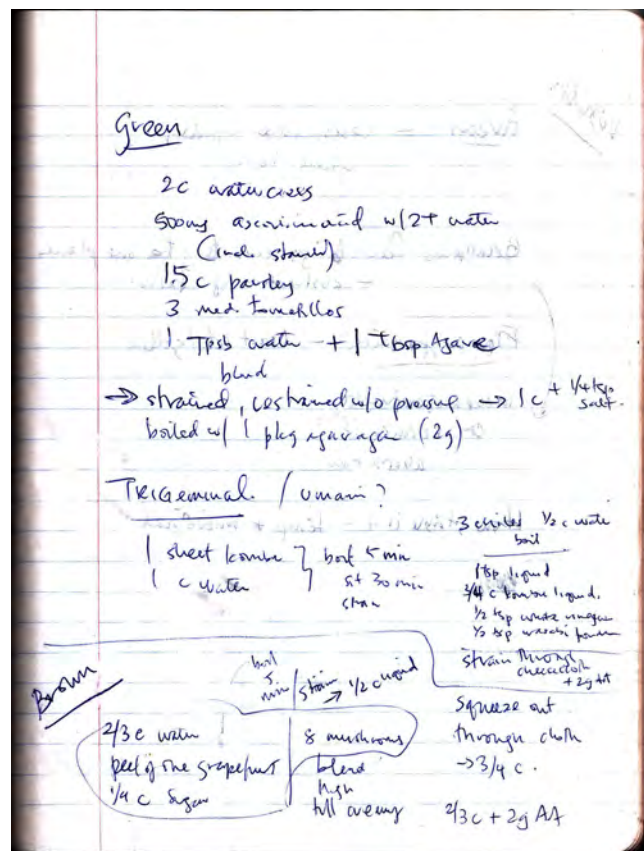 Green
2c watercress
500mg ascorbic acid w/ 2T water
(incl. stained)
1.5 c parsley
3 med. tomatillos
1 Tpsb water + 1 Tbsp Agave
blend
→ strained, restrained w/o pressing → 1 c + 1/4 tsp salt.
boiled w/ 1 pkg agar agar (2g)
TRIGEMINAL / umami?
1 sheet kombu } boil 5 min
1 c water } sit 30 min
strain
3 chiles 1/2 c water
boil
1 tsp liquid
3/4 c kombu liquid.
1/2 tsp white vinegar
1/3 tsp wasabi powder
strain through
cheesecloth
+ 2g AA
Brown
boil
5
min / strain → 1/2 c liquid
2/3 c water
peel of one grapefruit
1/4 c sugar
8 mushrooms
blend
high
till creamy
squeeze out
through cloth
→ 3/4 c.
2/3 c + 2g AA